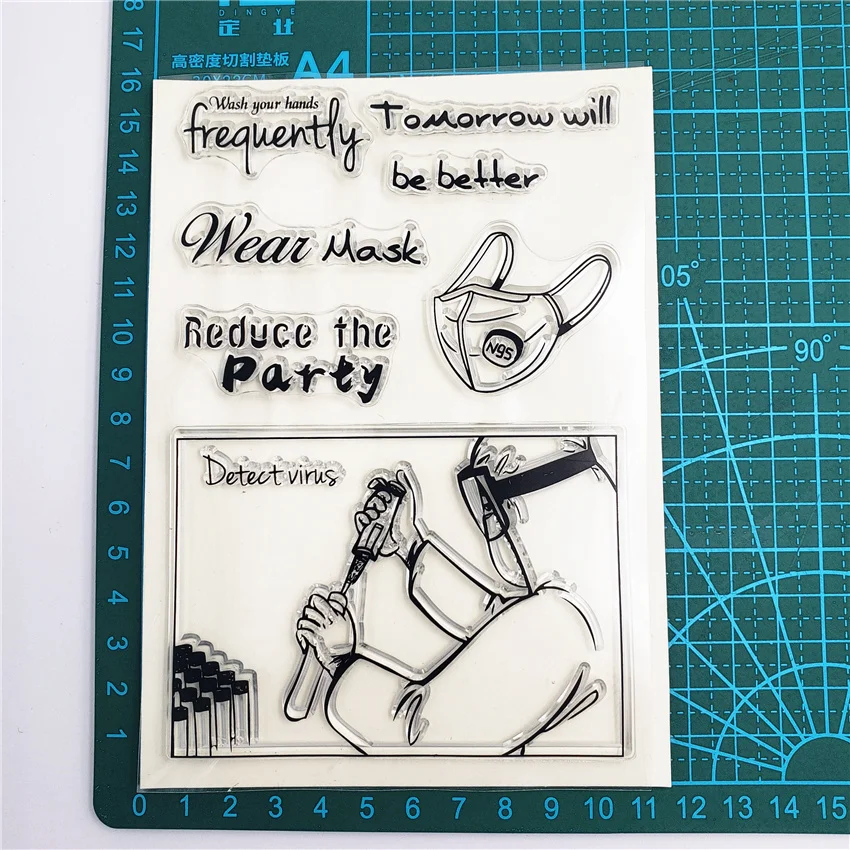 DINGYE
定 业
高密度切割垫板
A4
Wash your hands
frequently
Tomorrow will
be better
Wear Mask
N95
Reduce the
Party
Detect virus
105°
90°
18
17
16
15
14
13
12
11
10
9
8
7
6
5
4
3
2
1
0 1 2 3 4 5 6 7 8 9 10 11 12 13 14 15